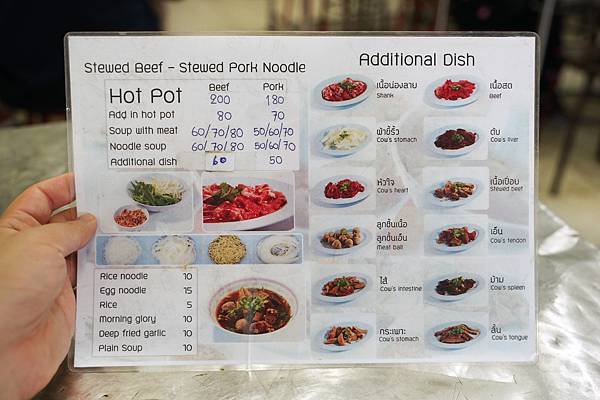 Stewed Beef - Stewed Pork Noodle
Beef Pork
Hot Pot 200 180
Add in hot pot 80 70
Soup with meat 60/70/80 50/60/70
Noodle soup 60/70/80 50/60/70
Additional dish 60 50
Rice noodle 10
Egg noodle 15
Rice 5
Morning glory 10
Deep fried garlic 10
Plain Soup 10
Additional Dish
เนื้อน่องลาย
Shank
เนื้อสด
Beef
ผ้าขี้ริ้ว
Cow's stomach
ตับ
Cow's liver
หัวใจ
Cow's heart
เนื้อเปื่อย
Stewed beef
ลูกชิ้นเนื้อ
ลูกชิ้นเอ็น
Meat ball
เอ็น
Cow's tendon
ไส้
Cow's intestine
ม้าม
Cow's spleen
กระเพาะ
Cow's stomach
ลิ้น
Cow's tongue